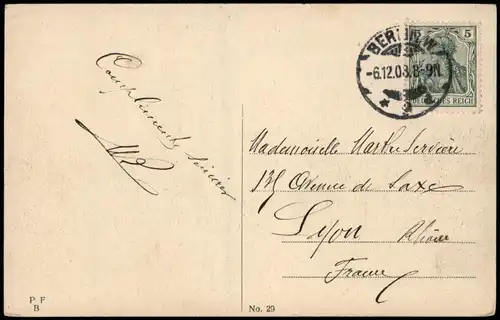 BERLIN.W.
-6.12.08.8-9N.
* 9 *
5
DEUTSCHES REICH
Compliments sincères
Mademoiselle Marthe Servière
135 Avenue de Saxe
Lyon Rhône
France
P F
B
No. 29